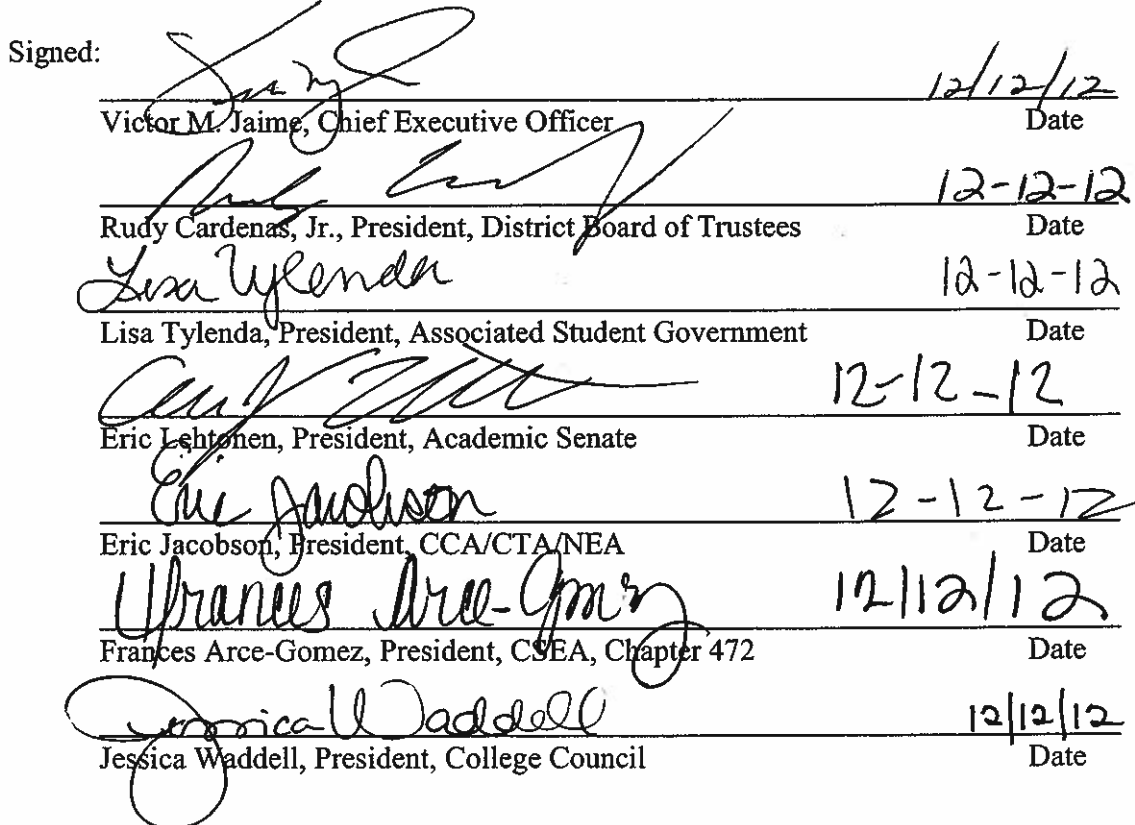 Signed:
12/12/12
Victor M. Jaime, Chief Executive Officer Date
12-12-12
Rudy Cardenas, Jr., President, District Board of Trustees Date
Lisa Tylenda 12-12-12
Lisa Tylenda, President, Associated Student Government Date
12-12-12
Eric Lehtonen, President, Academic Senate Date
Eric Jacobson 12-12-12
Eric Jacobson, President, CCA/CTA/NEA Date
Frances Arce-Gomez 12/12/12
Frances Arce-Gomez, President, CSEA, Chapter 472 Date
Jessica Waddell 12/12/12
Jessica Waddell, President, College Council Date